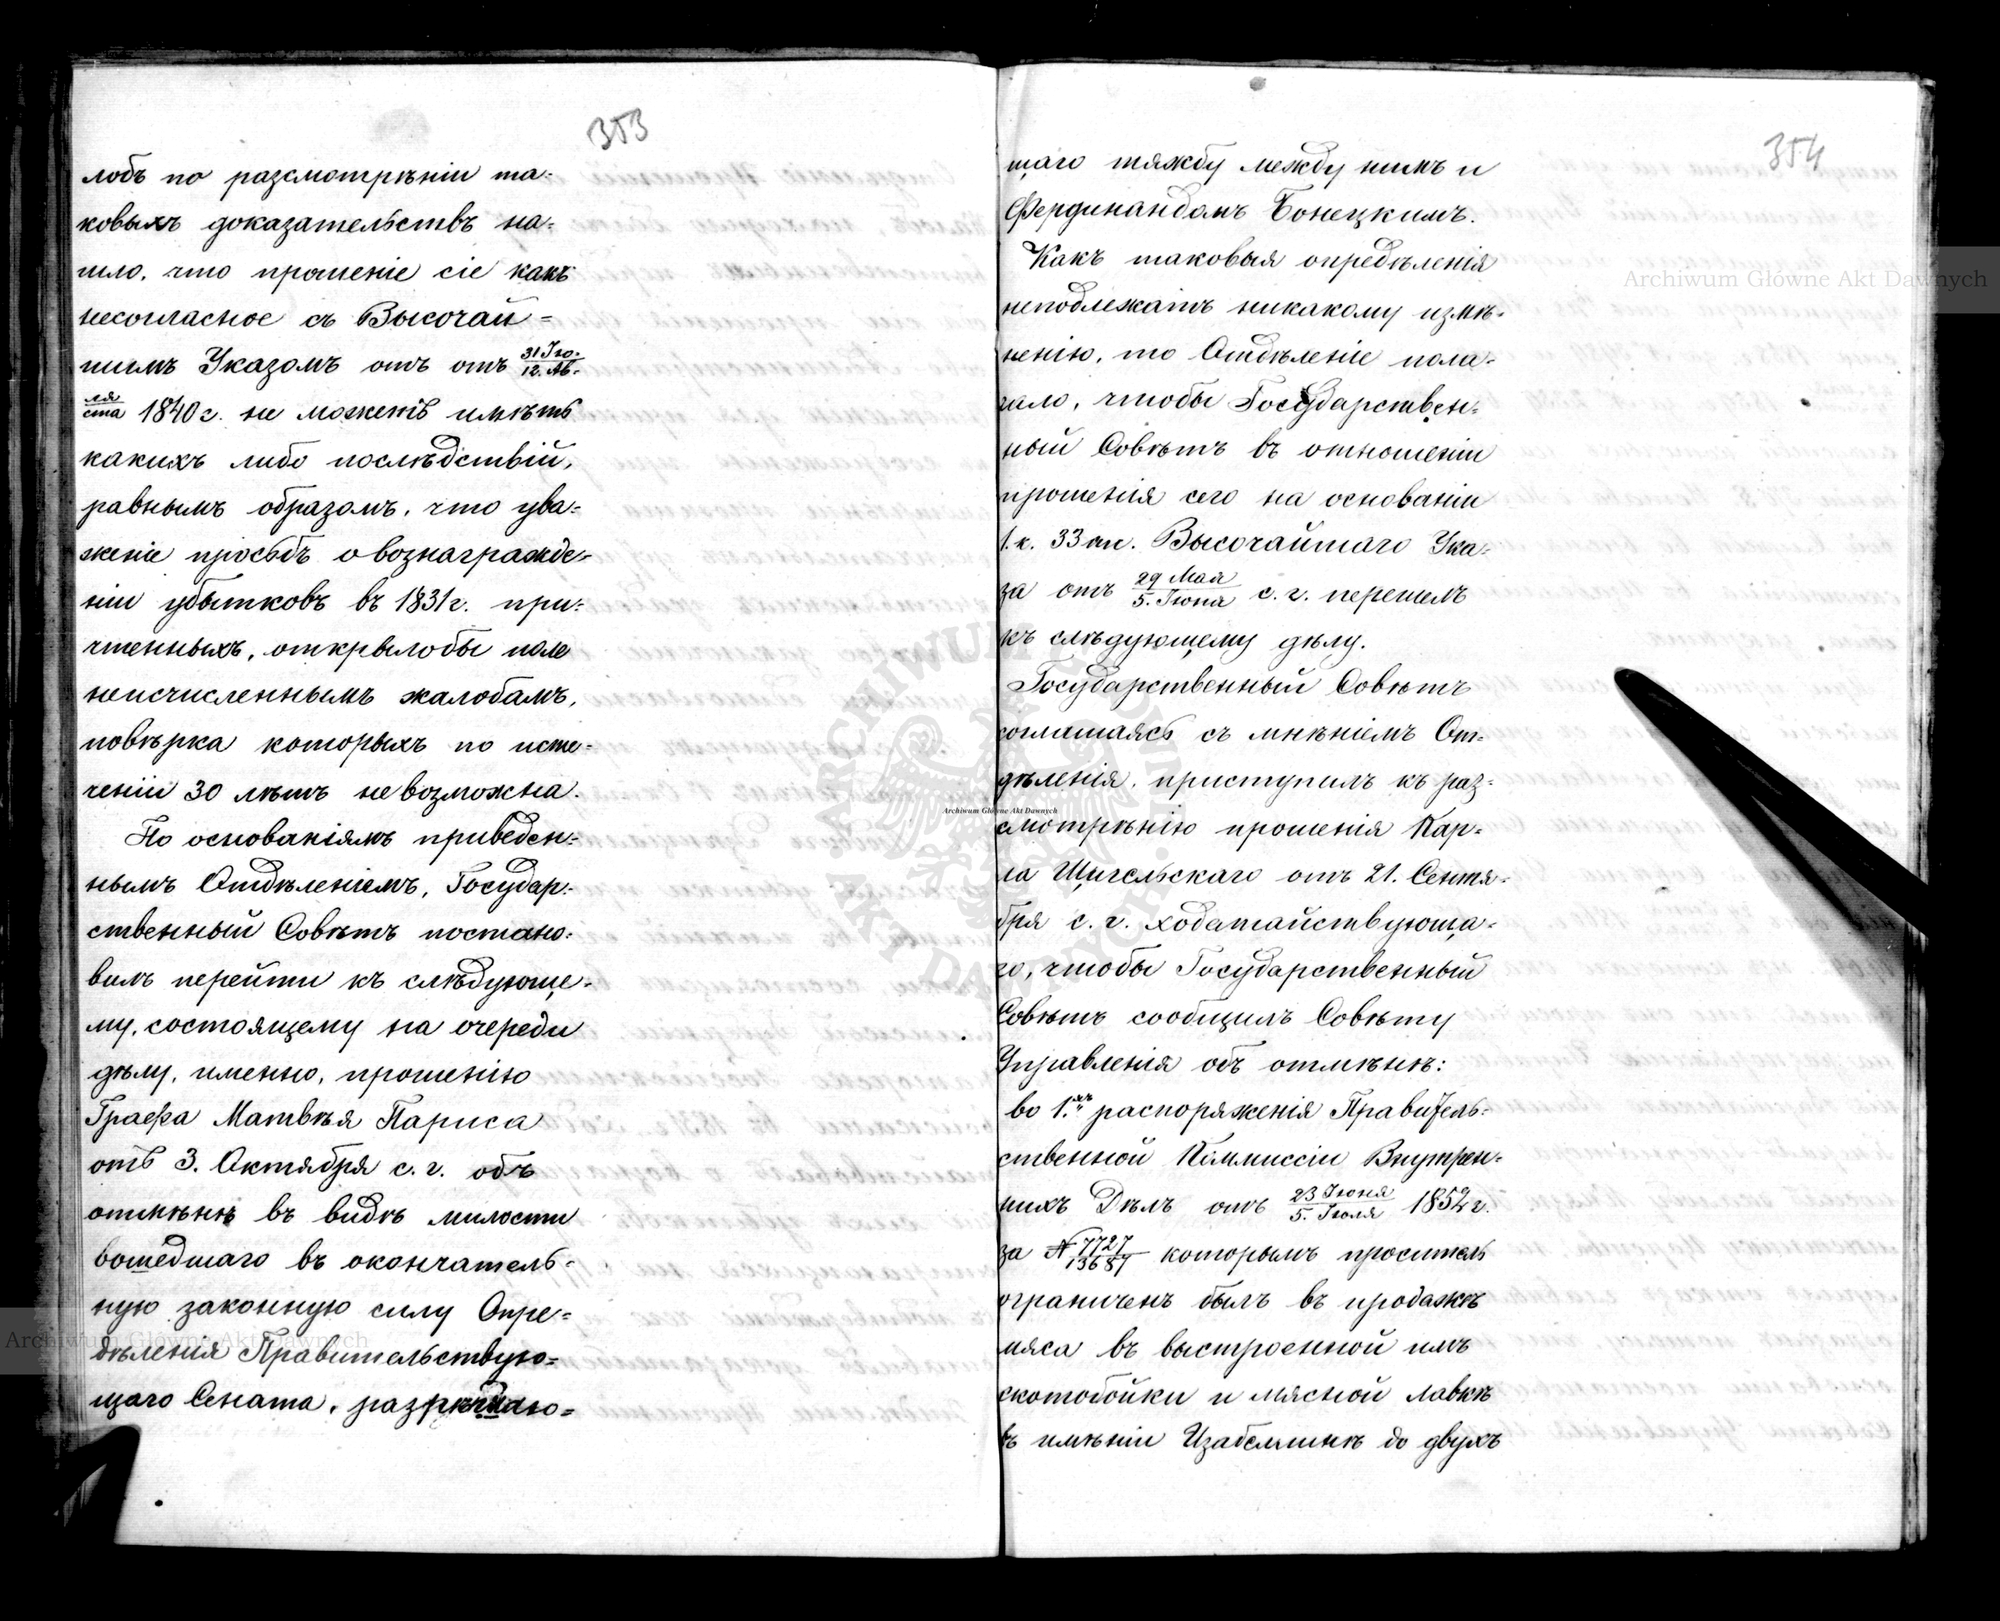 353
лобъ по разсмотрѣніи та-
ковыхъ доказательствъ на-
шло, что прошеніе сіе какъ
несогласное съ Высочай-
шимъ Указомъ отъ отъ 31 Ію-/12. Ав-
ля/ста 1840 г. не можетъ имѣть
какихъ либо послѣдствій,
равнымъ образомъ, что ува-
женіе просьбъ о вознагражде-
ніи убытковъ въ 1831 г. при-
чтенныхъ, открылобы поле
неисчисленнымъ жалобамъ,
повѣрка которыхъ по исте-
ченіи 30 лѣтъ невозможна.
По основаніямъ приведен-
нымъ Отдѣленіемъ, Государ-
ственный Совѣтъ постано-
вилъ перейти къ слѣдующе-
му, состоящему на очереди
дѣлу, именно, прошенію
Графа Матвѣя Париса
отъ 3. Октября с. г. объ
отмѣнѣ въ видѣ милости
вошедшаго въ окончатель-
ную законную силу Опре-
дѣленія Правительствую-
щаго Сената, разрѣшаю-
354
щаго тяжбу между нимъ и
Фердинандомъ Бонецкимъ.
Какъ таковыя опредѣленія
неподлежатъ никакому измѣ-
ненію, то Отдѣленіе пола-
гало, чтобы Государствен-
ный Совѣтъ въ отношеніи
прошенія сего на основаніи
1. к. 33 ст. Высочайшаго Ука-
за отъ 29 Мая/5. Іюня с. г. перешелъ
къ слѣдующему дѣлу.
Государственный Совѣтъ
соглашаясь съ мнѣніемъ От-
дѣленія, приступилъ къ раз-
смотрѣнію прошенія Кар-
ла Щигельскаго отъ 21. Сентя-
бря с. г. ходатайствующа-
го, чтобы Государственный
Совѣтъ сообщилъ Совѣту
Управленія объ отмѣнѣ:
во 1.хъ распоряженія Правитель-
ственной Коммиссіи Внутрен-
нихъ Дѣлъ отъ 23 Іюня/5. Іюля 1852 г.
за N 7727/13687 которымъ проситель
ограниченъ былъ въ продажѣ
мяса въ выстроенной имъ
скотобойки и мясной лавкѣ
въ имѣніи Изабелинѣ до двухъ
Archiwum Główne Akt Dawnych
Archiwum Główne Akt Dawnych
Archiwum Główne Akt Dawnych
ARCHIWUM GŁÓWNE AKT DAWNYCH